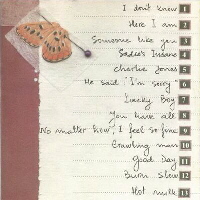 I don't know 1
Here I am 2
Someone like you 3
Sadie's Insane 4
Charlie Jonas 5
He said "I'm sorry" 6
Lucky Boy 7
You have all 8
No matter how, I feel so fine 9
Crawling man 10
Good Day 11
Burn Slow 12
Hot milk 13